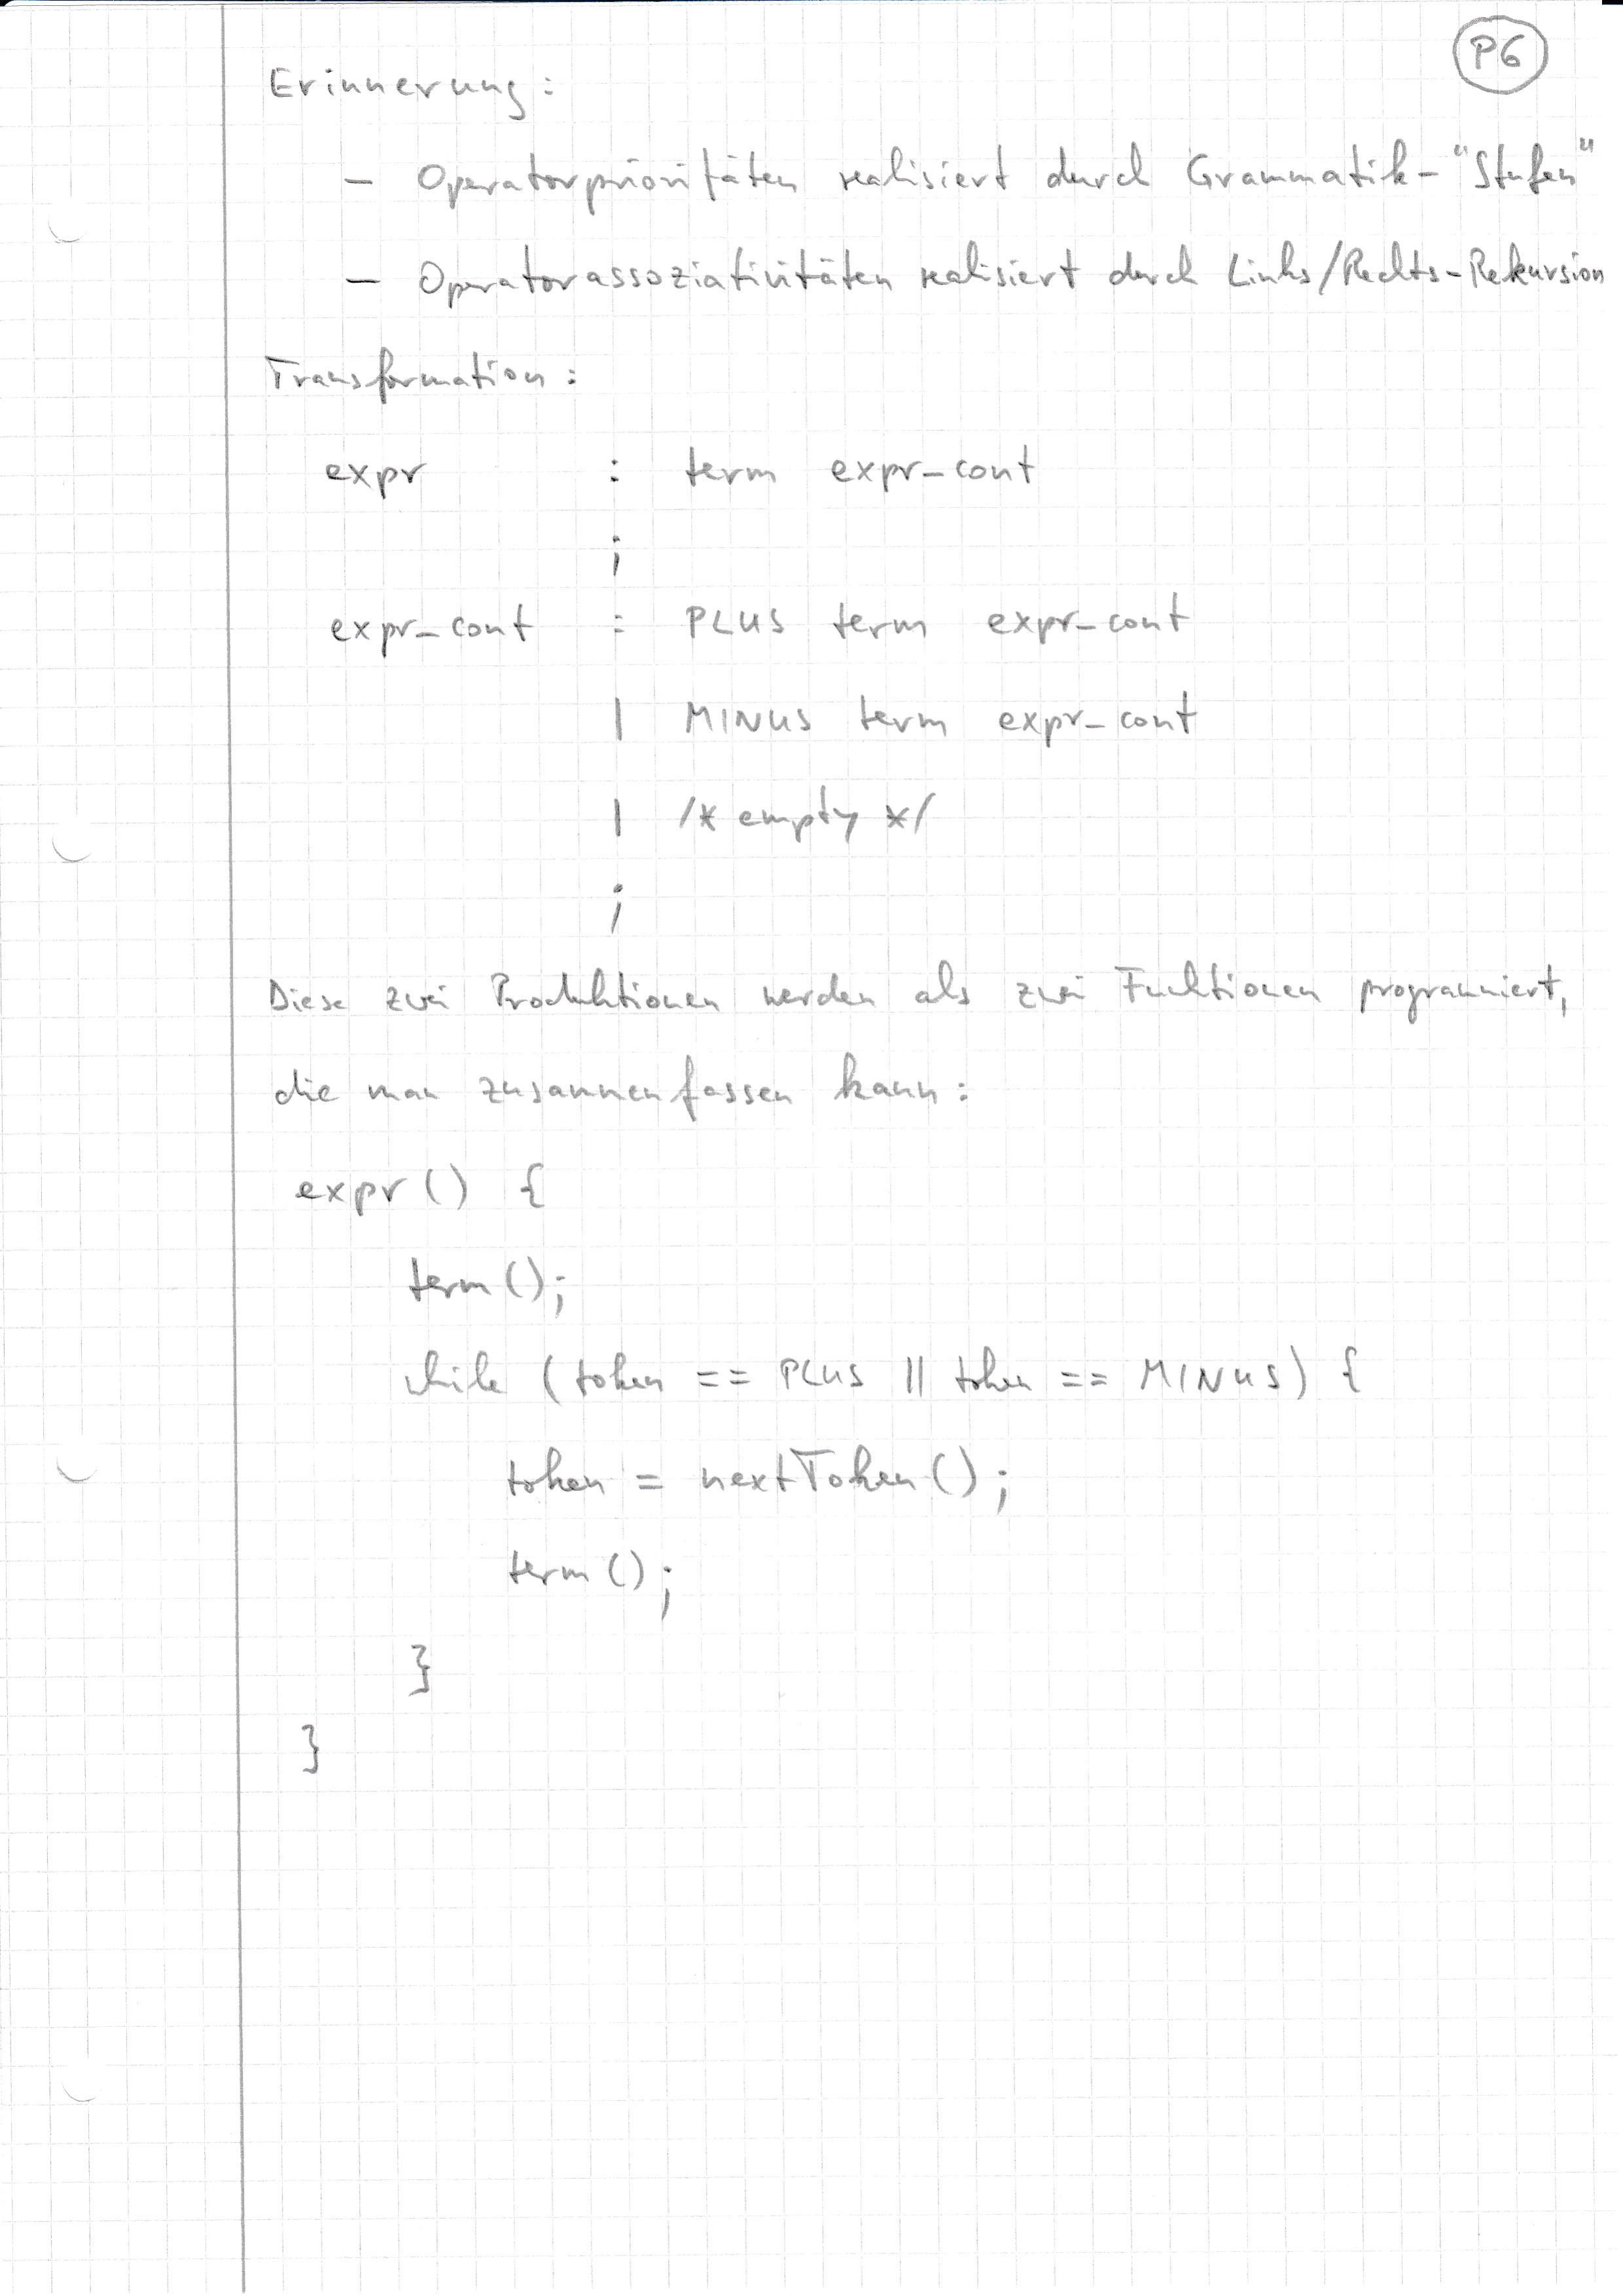 P6
Erinnerung:
- Operatorprioritäten realisiert durch Grammatik-"Stufen"
- Operatorassoziativitäten realisiert durch Links/Rechts-Rekursion
Transformation:
expr : term expr_cont
;
expr_cont : PLUS term expr_cont
| MINUS term expr_cont
| /* empty */
;
Diese zwei Produktionen werden als zwei Funktionen programmiert,
die man zusammenfassen kann:
expr () {
term ();
while (token == PLUS || token == MINUS) {
token = nextToken ();
term ();
}
}